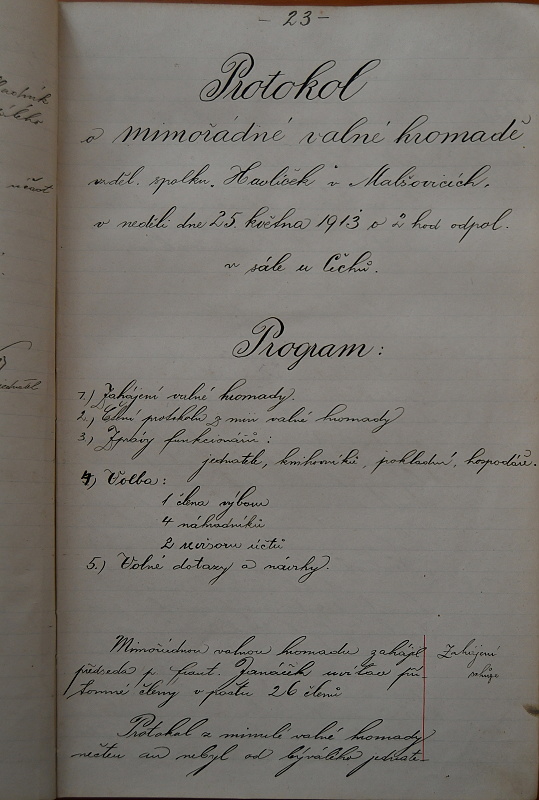 - 23 -
Protokol
o mimořádné valné hromadě
vzděl. spolku. Havlíček v Malšovicích.
v neděli dne 25. května 1913 o 2 hod odpol.
v sále u Čechů.
Program:
1.) Zahájení valné hromady.
2.) Čtení protokolu z min valné hromady
3.) Zprávy funkcionářů:
jednatele, knihovníků, pokladní, hospodáře.
4.) Volba:
1 člena výboru
4 náhradníků
2 revisoru účtů
5.) Volné dotazy a návrhy.
Mimořádnou valnou hromadu zahájil
Zahájení
schůze
předseda p. Frant. Janáček uvítav pří-
tomné členy v počtu 26 členů
Protokol z minulé valné hromady
nečten an nebyl od bývalého jednate-